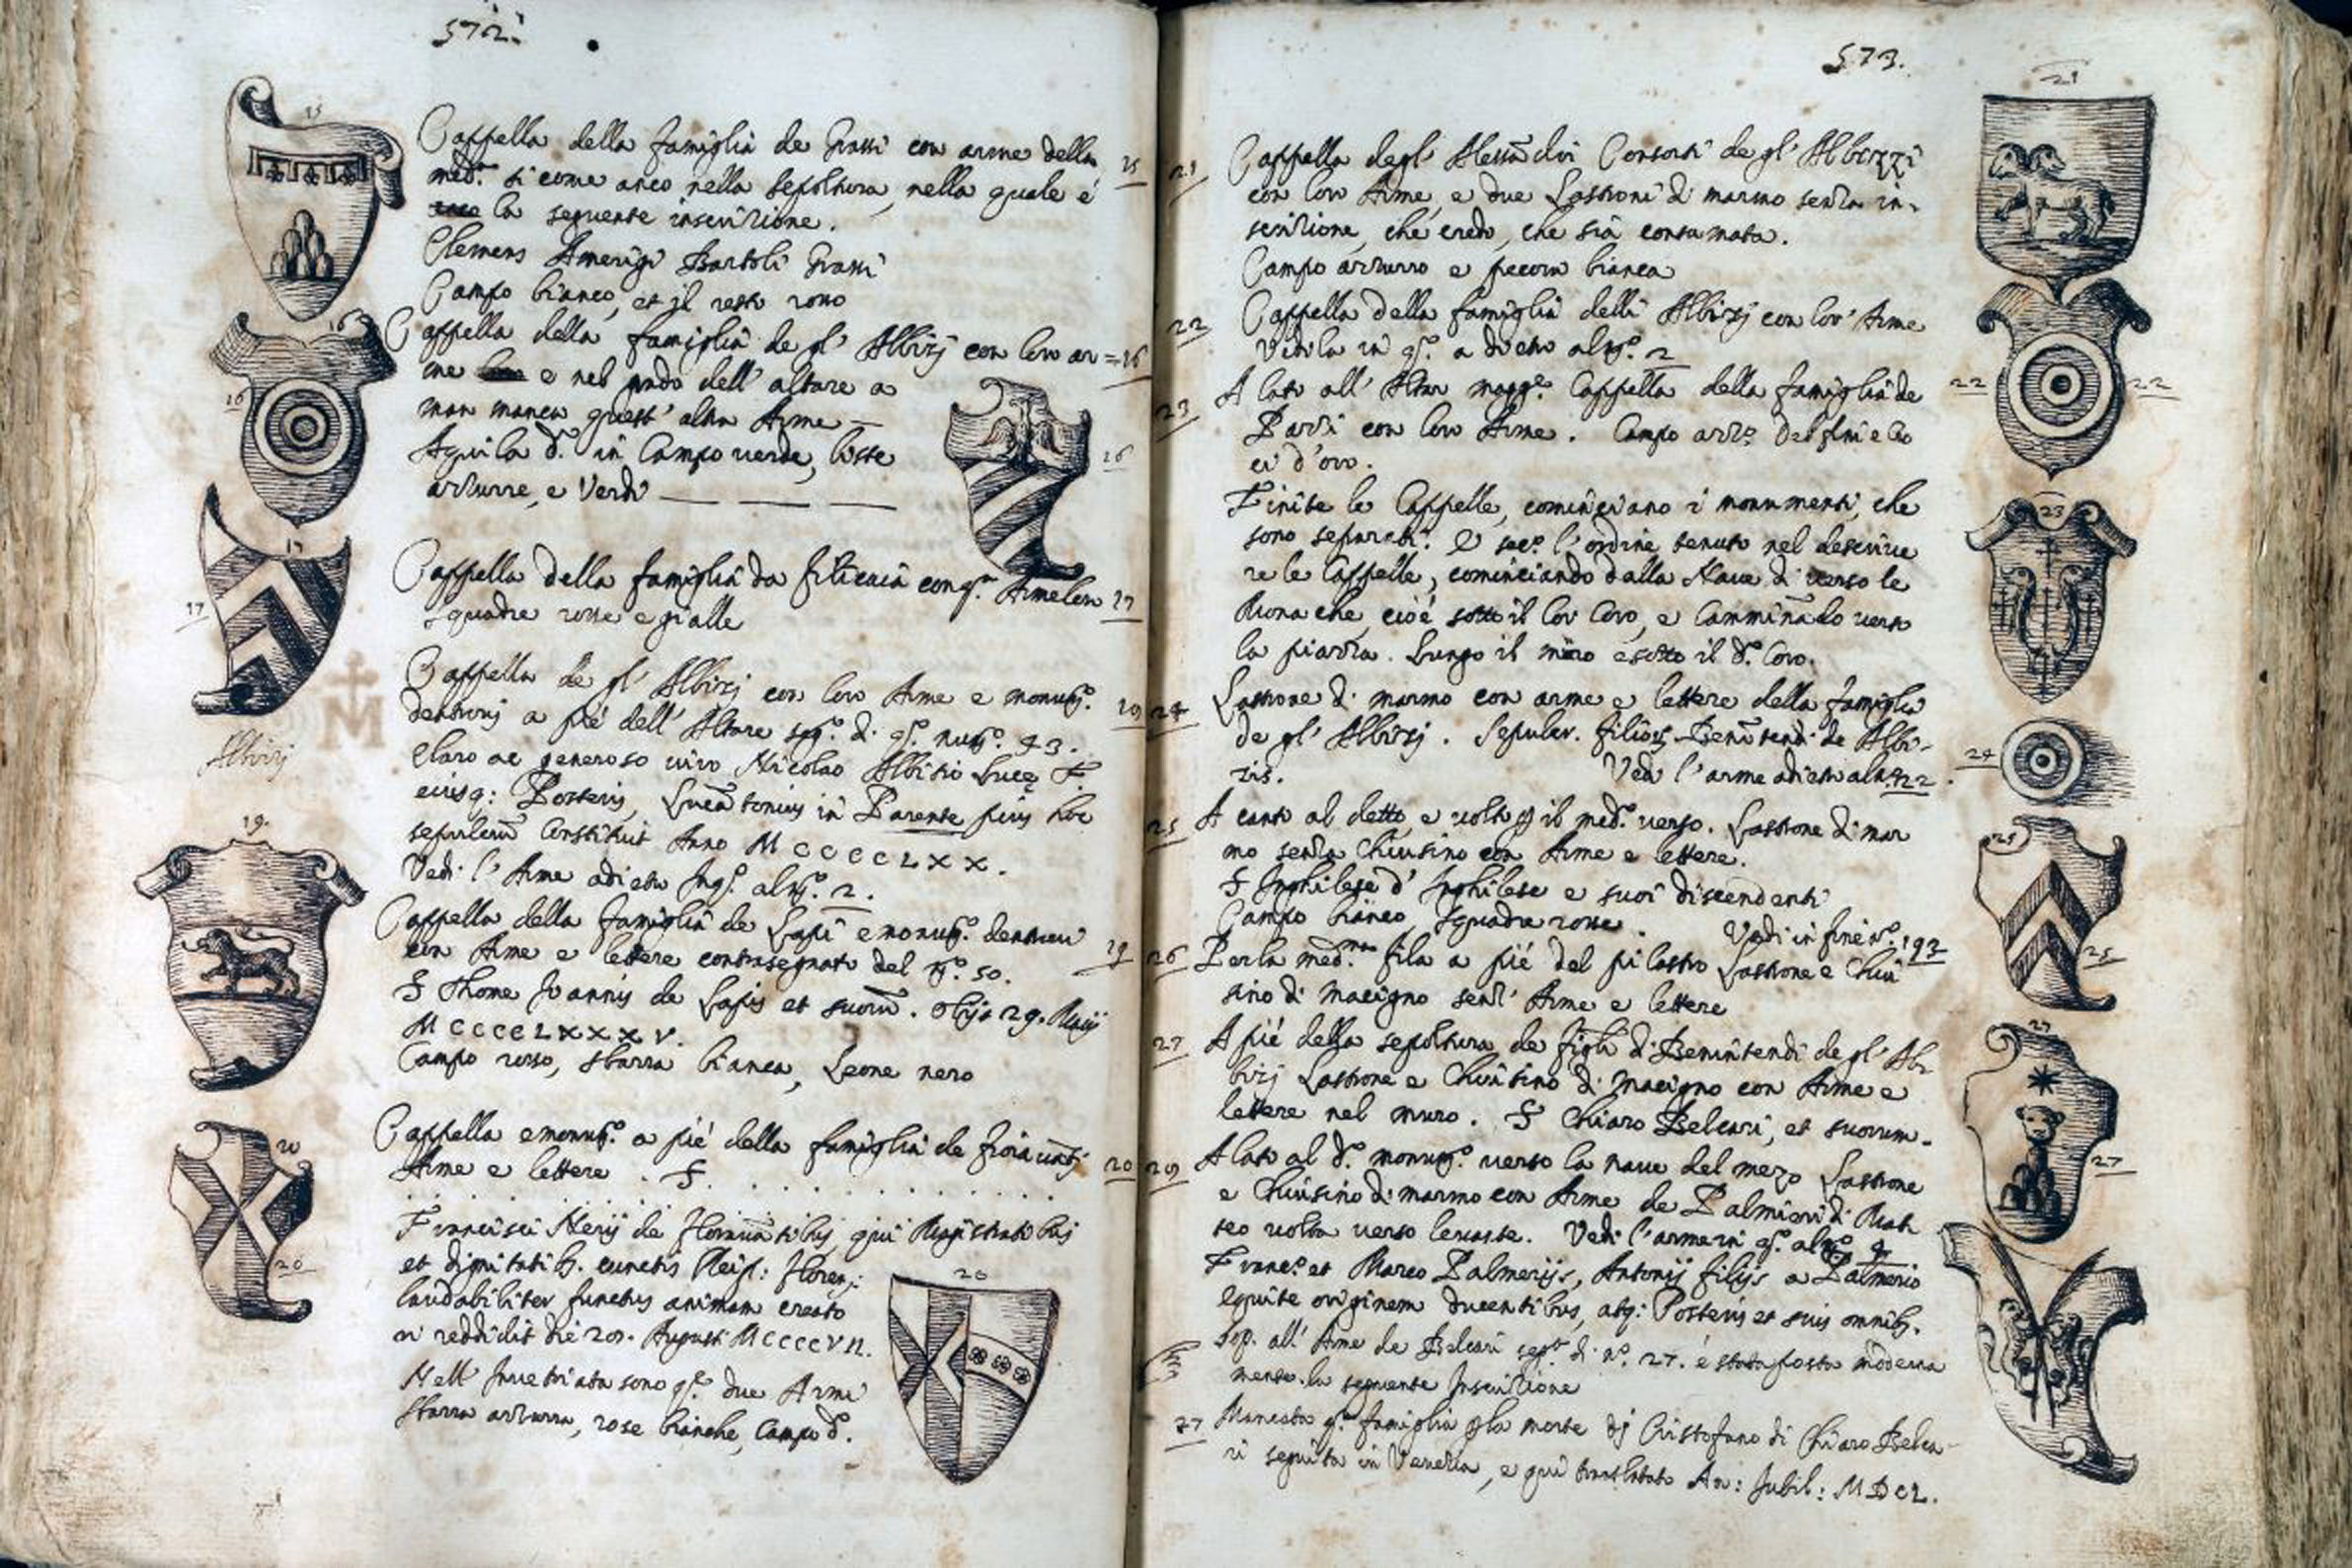 572.
15
Cappella della famiglia de Grassi con arme della 15
med.ª si come anco nella sepoltura, nella quale é
la seguente inscrizione.
Clemens Amerigi Bartoli Grassi
Campo bianco, et il resto rosso
16
Cappella della famiglia de gl' Albizj con loro ar= 16
me e nel grado dell' altare a
16
man manca quest' altra Arme —
Aquila d.º in Campo verde, liste 16
azzurre, e Verdi — — —
17
Cappella della famiglia da filicaia con q.ª Arme loro 17
squadre rosse e gialle
17
M
Cappella de gl' Albizj con loro Arme e monum.º
dentrovj a pié dell' Altare seg.º di q.º num.º 43.
Albizj
Claro ac generoso viro Nicolao Albitio Lucę F.
eiusq: Posteris, Lucantonius in Parente pius hoc
sepulcrū Constituit Anno MCCCCLXX.
Vedi l' Arme adietro In q.º al n.º 2.
19.
Cappella della famiglia de Lapi e monum.º dentrovi
con Arme e lettere contrasegnato del n.º 50. 19
S Thome Joannis de Lapis et suorū. Obijt 29. Maij
MCCCCLXXXV.
Campo rosso, sbarra bianca, Leone nero
Cappella e monum.º a pié della famiglia de fioravāti
20
Arme e lettere . S. 20
Francisci Nerij de Floravātibus qui Magistratibus
et dignitatib. cunctis Reip: Floren:
20
laudabiliter functus animam creato
20
ri reddidit die 20. Augusti MCCCCVII.
Nell' Invetriata sono q.e due Armi
sbarra azzurra, rose bianche, Campo d.º
573.
21
21 Cappella degl' Alessādri Consorti de gl' Albizzi
con loro Arme, e due Lastroni di marmo senza in-
scrizione, che credo, che sia consumata.
Campo azzurro e pecora bianca
22 Cappella della famiglia delli Albizj con lor' Arme
Vedila in q.º a dietro al n.º 2
22 22
23 A lato all' Altar magg.e Cappella della famiglia de
Pazzi con loro Arme. Campo azz.º Delfini e Cro
ci d'oro.
Finite le Cappelle, cominciano i monumenti, che
23
sono separati. E sec.º l'ordine tenuto nel descrive
re le Cappelle, cominciando dalla Nave di verso le
Monache, cioé sotto il lor Coro, e Camminādo verso
la piazza. Lungo il muro e sotto il d.º Coro.
24 Lastrone di marmo con arme e lettere della famiglia
de gl' Albizj. Sepulcr. filiorū Benintendi de Albi-
24
zis. Vedi l'arme adietro al n. 22.
25 A canto al detto, e volto p il med.º verso. Lastrone di mar
mo senza Chiusino con Arme e lettere.
25
S Inghilese d' Inghilese e suoi discendenti
Campo bianco, squadra rosse. Vedi in fine n.º 193
26 Per la med.ma fila a pié del pilastro Lastrone e Chiu
25
sino di macigno senz' Arme e lettere
27 A pié della sepoltura de figli di Benintendi de gl' Al
27
bizj Lastrone e Chiusino di macigno con Arme e
lettere nel muro. S Chiaro Belcari, et suorum.
A lato al d.º monum.º verso la nave del mezo Lastrone
27
e Chiusino di marmo con Arme de Palmieri di Mat
teo volta verso levante. Vedi l'arme in q.º al n.º 4
Franc.º et Marco Palmerijs, Antonij filijs a Palmerio
Equite originem ducentibus, atq: Posteris et suis omnib.
Sop. all' Arme de Belcari seg.º di n.º 27. é stata posta moderna
mente la seguente Inscrizione
27 Mancata q.ª famiglia p la morte dj Cristofano di Chiaro Belca
ri seguita in Venezia, e qui traslatato An: Jubil: MDCL.